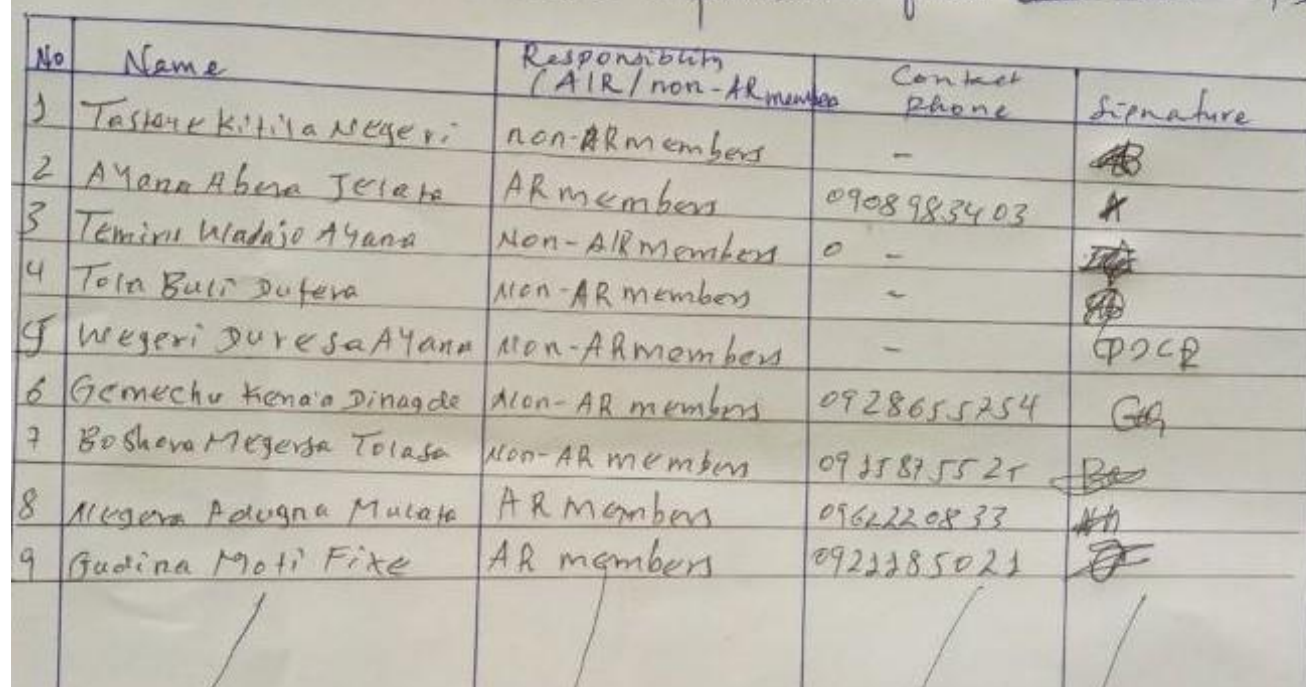 No Name Responsiblity (AIR/non-AR member Contact Phone Signature
1 Kitila Negeri non-ARmembers -
2 AYana Abera Jelata ARmembers 0908983403
3 Temiru Wadajo AYana Non-AIRmembers 0 -
4 Tola Buli Dufera Non-ARmembers -
5 Negeri DuresaAYana Non-ARmembers -
6 Gemechu Kena'a Dinagde Non-AR members 0928655254
7 Boshera Megersa Tolasa Non-AR members
8 Negera Adugna Mulata AR members 0962220833
9 Gudina Moti Fixe AR members 0921185021